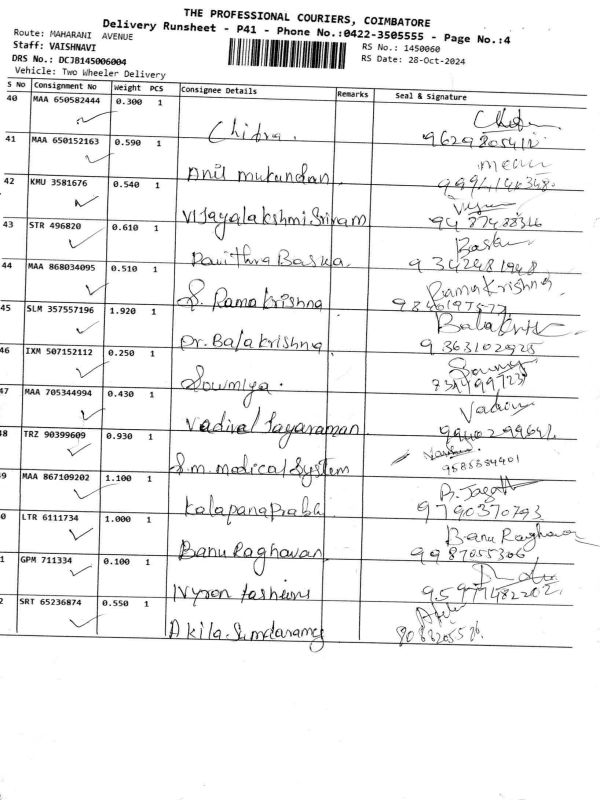 THE PROFESSIONAL COURIERS, COIMBATORE
Delivery Runsheet - P41 - Phone No.:0422-3505555 - Page No.:4
Route: MAHARANI AVENUE
RS No.: 1450060
Staff: VAISHNAVI
RS Date: 28-Oct-2024
DRS No.: DCJB145006004
Vehicle: Two Wheeler Delivery
S No Consignment No Weight PCS Consignee Details Remarks Seal & Signature
40 MAA 650582444 0.300 1 Chitra.
41 MAA 650152163 0.590 1 Anil mukundan
42 KMU 3581676 0.540 1 Vijayalakshmi Sriram
9487488316
43 STR 496820 0.610 1 Pavithra Baska
9342481948
44 MAA 868034095 0.510 1 S. Rama krishna Rama Krishna
45 SLM 357557196 1.920 1 Dr. Bala krishna
9363102925
46 IXM 507152112 0.250 1 Sowmiya.
47 MAA 705344994 0.430 1 Vadivel Jayaraman
48 TRZ 90399609 0.930 1 S.m. medical System
9585384401
MAA 867109202 1.100 1 Kalapana Praba
9790370793
LTR 6111734 1.000 1 Banu Raghavan Banu Raghavan
9987055306
GPM 711334 0.100 1 Nyron fashions
SRT 65236874 0.550 1 Akila. Sundaramg